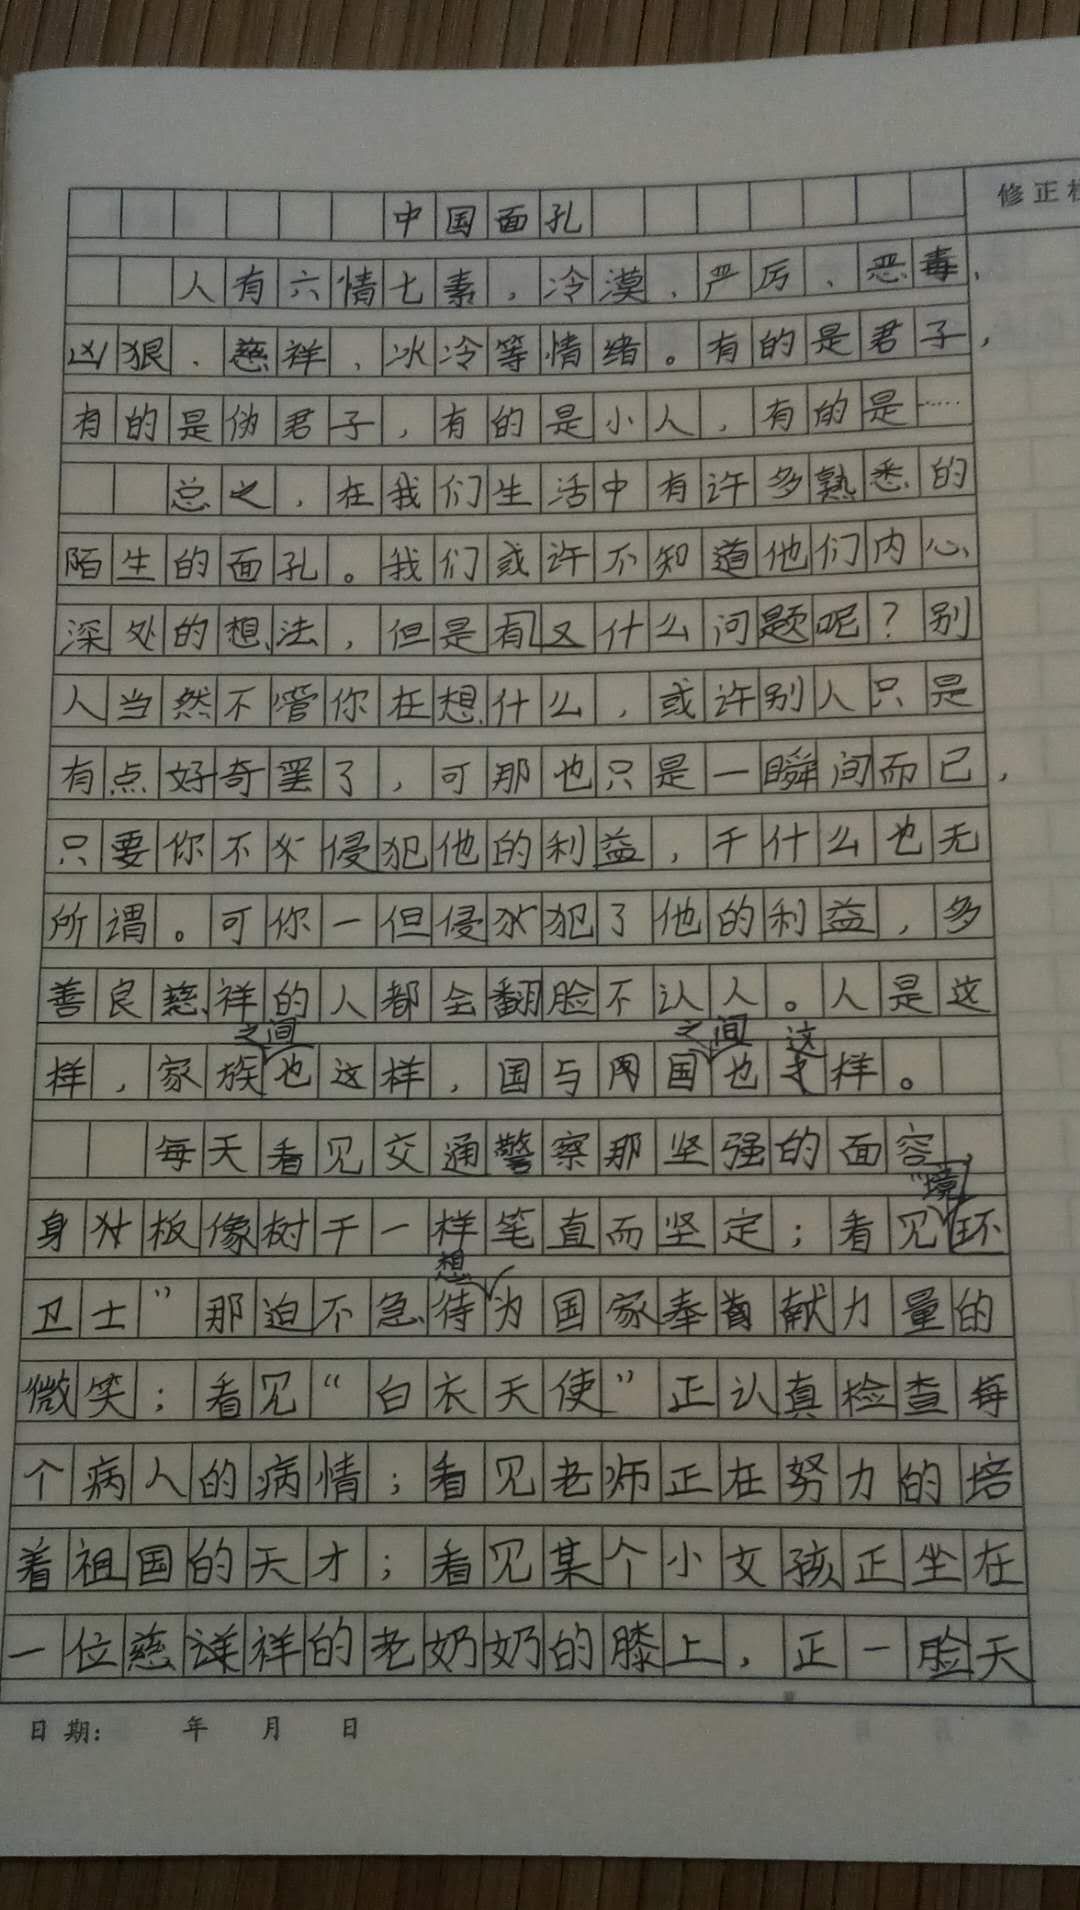 中国面孔
修正
人有六情七素，冷漠、严厉、恶毒、
凶狠、慈祥、冰冷等情绪。有的是君子，
有的是伪君子，有的是小人，有的是……
总之，在我们生活中有许多熟悉的
陌生的面孔。我们或许不知道他们内心
深处的想法，但是有又什么问题呢？别
人当然不管你在想什么，或许别人只是
有点好奇罢了，可那也只是一瞬间而已，
只要你不侵犯他的利益，干什么也无
所谓。可你一但侵犯了他的利益，多
善良慈祥的人都会翻脸不认人。人是这
样，家族之间也这样，国与国之间也这样。
每天看见交通警察那坚强的面容，
身板像树干一样笔直而坚定；看见“环境
卫士”那迫不急待想为国家奉献力量的
微笑；看见“白衣天使”正认真检查每
个病人的病情；看见老师正在努力的培
着祖国的天才；看见某个小女孩正坐在
一位慈祥的老奶奶的膝上，正一脸天
日期： 年 月 日